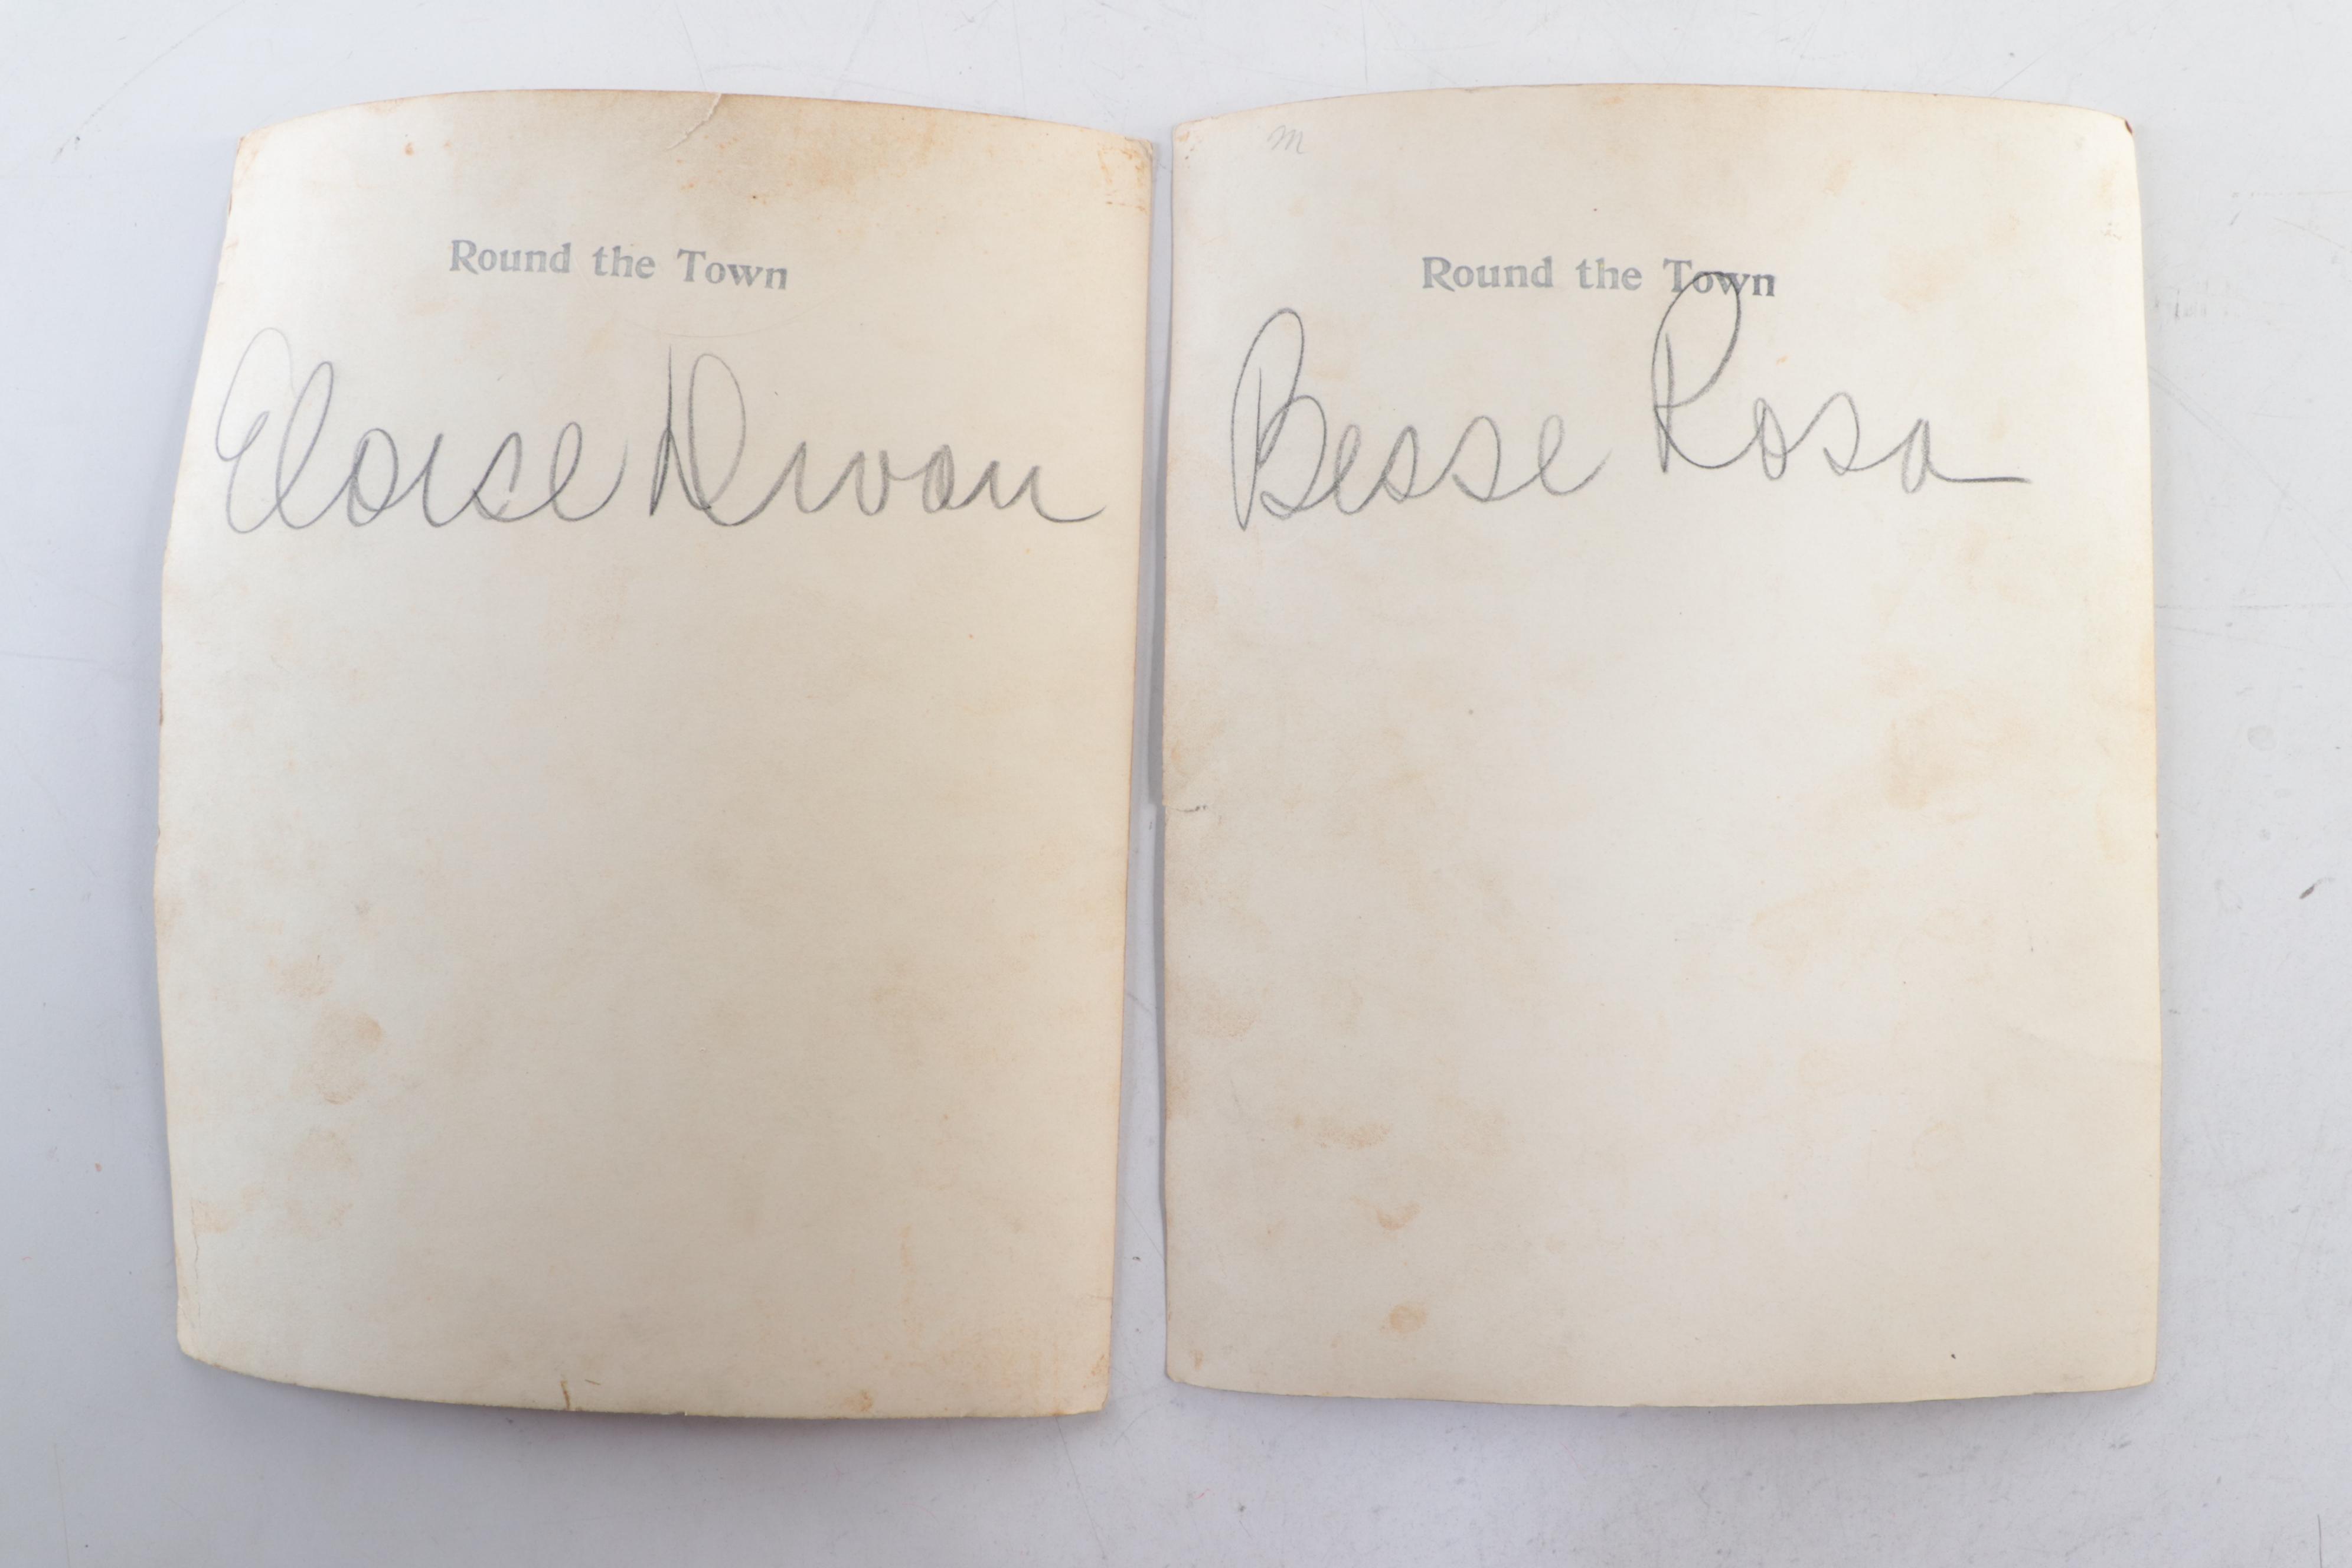 Round the Town
Eloise Divan
m
Round the Town
Besse Rosa